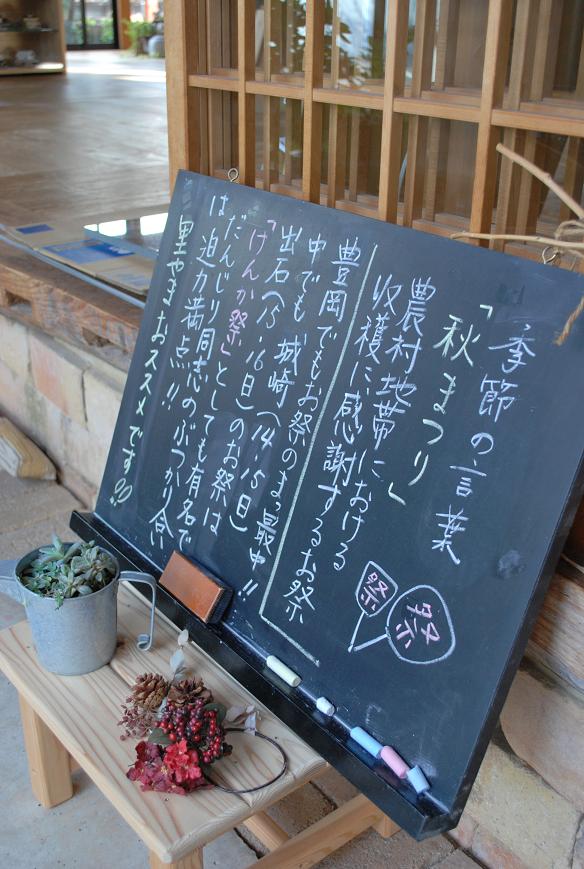 季節の言葉
「秋まつり」
農村地帯における
収穫に感謝するお祭
祭
祭
豊岡でもお祭のまっ最中!!
中でも城崎(14・15日)
出石(15・16日)のお祭は
「けんか祭」としても有名で
はだんじり同志のぶつかり合い
は迫力満点!!
里やまおススメです